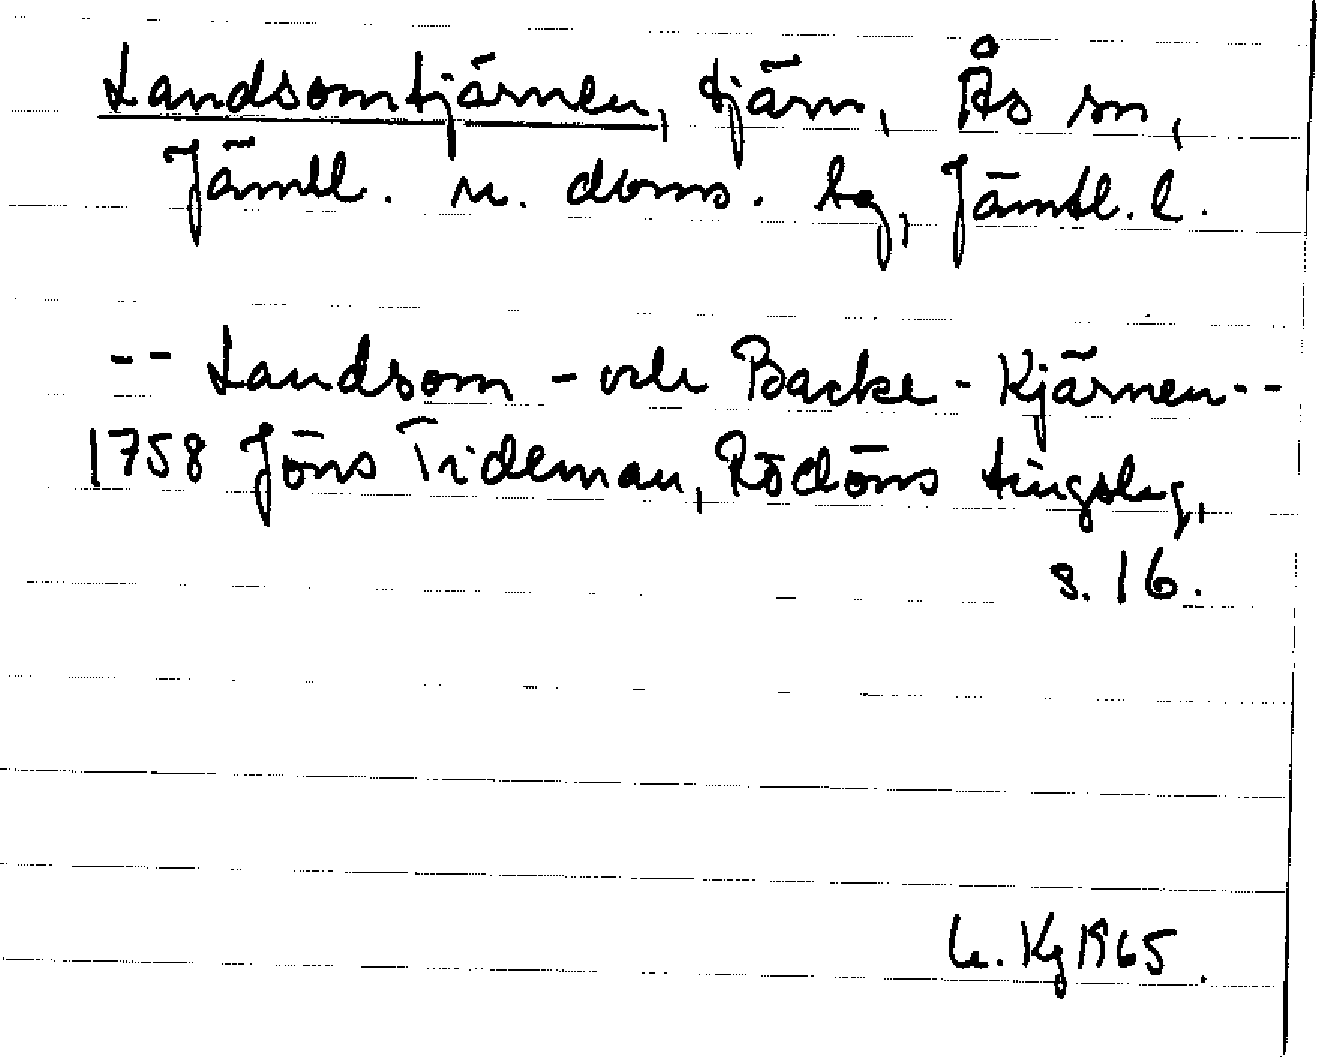 Landsomtjärnen, tjärn, Ås sn,
Jämtl. n. doms. tg, Jämtl. l.
-- Landsom - och Backe - Kjärnen --
1758 Jöns Tideman, Rödöns tingslag,
s. 16.
Kg 1965.